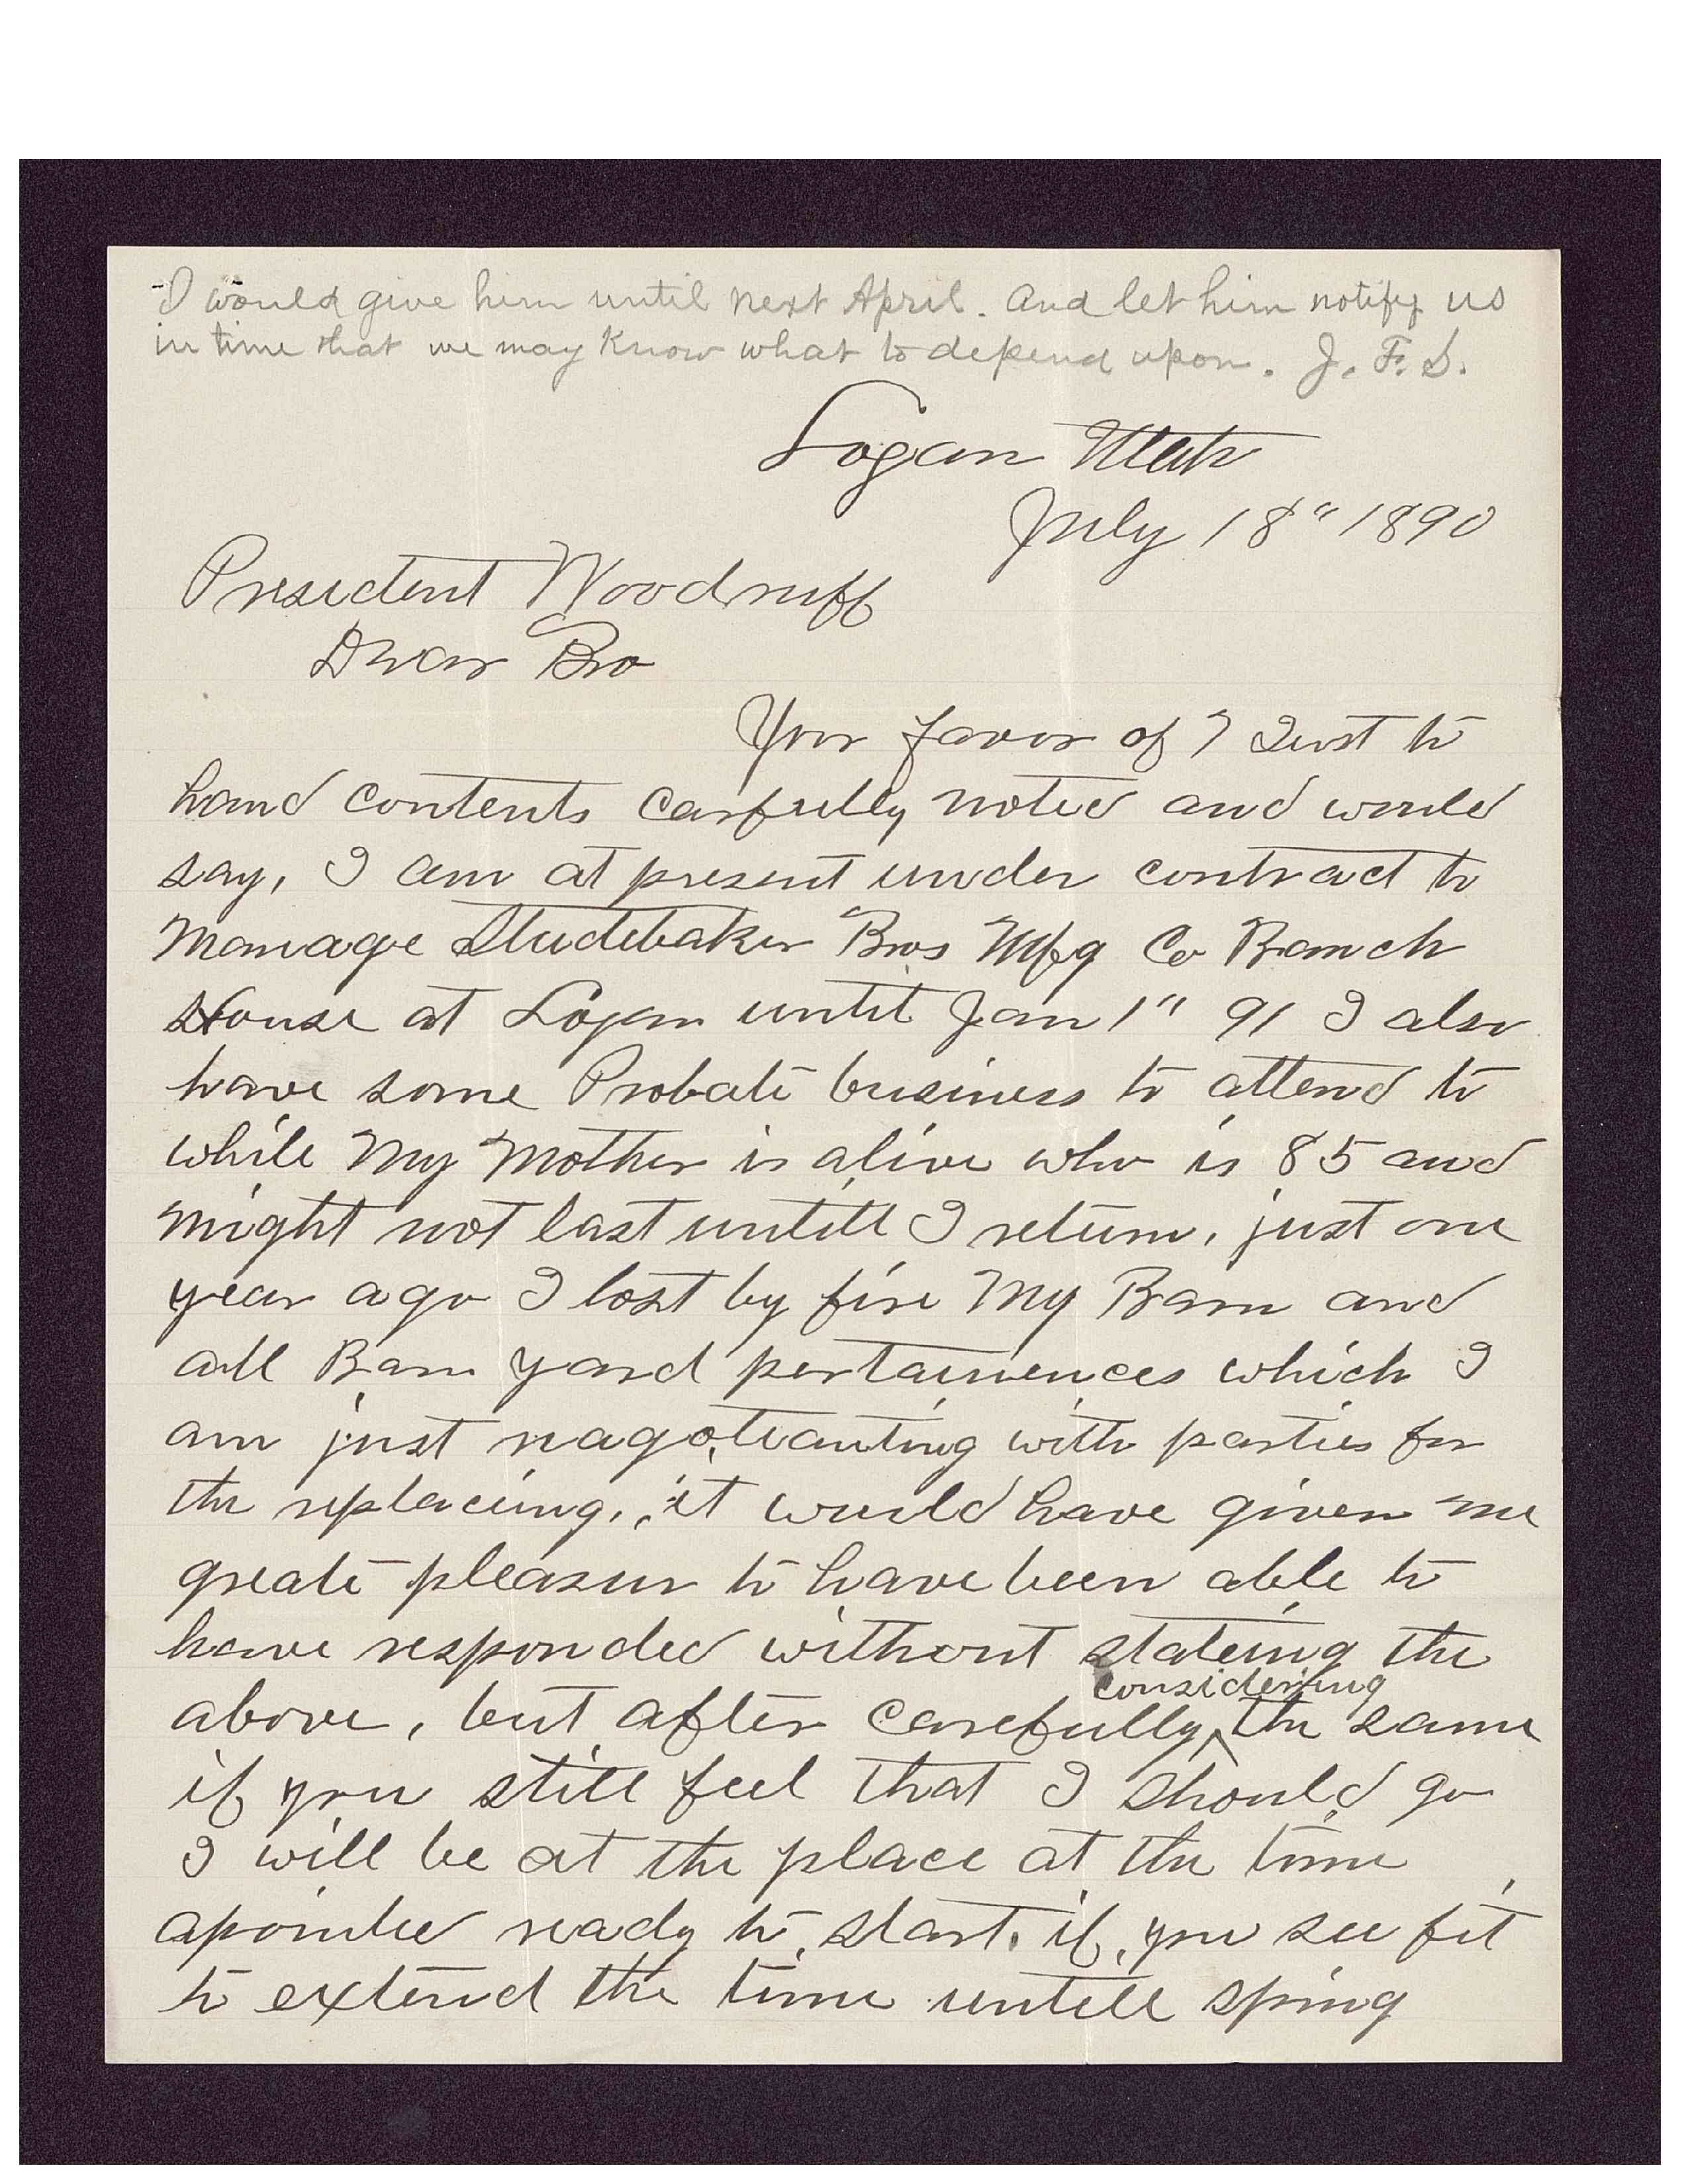 I would give him until next April. and let him notify us
in time that we may know what to depend upon. J. F. S.
Logan Utah
July 18" 1890
President Woodruff
Dear Bro
Your favor of 7 Inst to
hand contents carfully noted and would
say, I am at present under contract to
Manage Studebaker Bros Mfg Co Branch
House at Logan until Jan 1" 91 I also
have some Probate business to attend to
while My Mother is alive who is 85 and
might not last untill I return, just one
year ago I lost by fire My Barn and
all Barn yard pertainences which I
am just nagotianting with parties for
the replaceing, it would have given me
greate pleasur to have been able to
have responded without stateing the
above, but after carefully considering the same
if you still feel that I should go
I will be at the place at the time
apointed ready to start. if you see fit
to extend the time untill spring